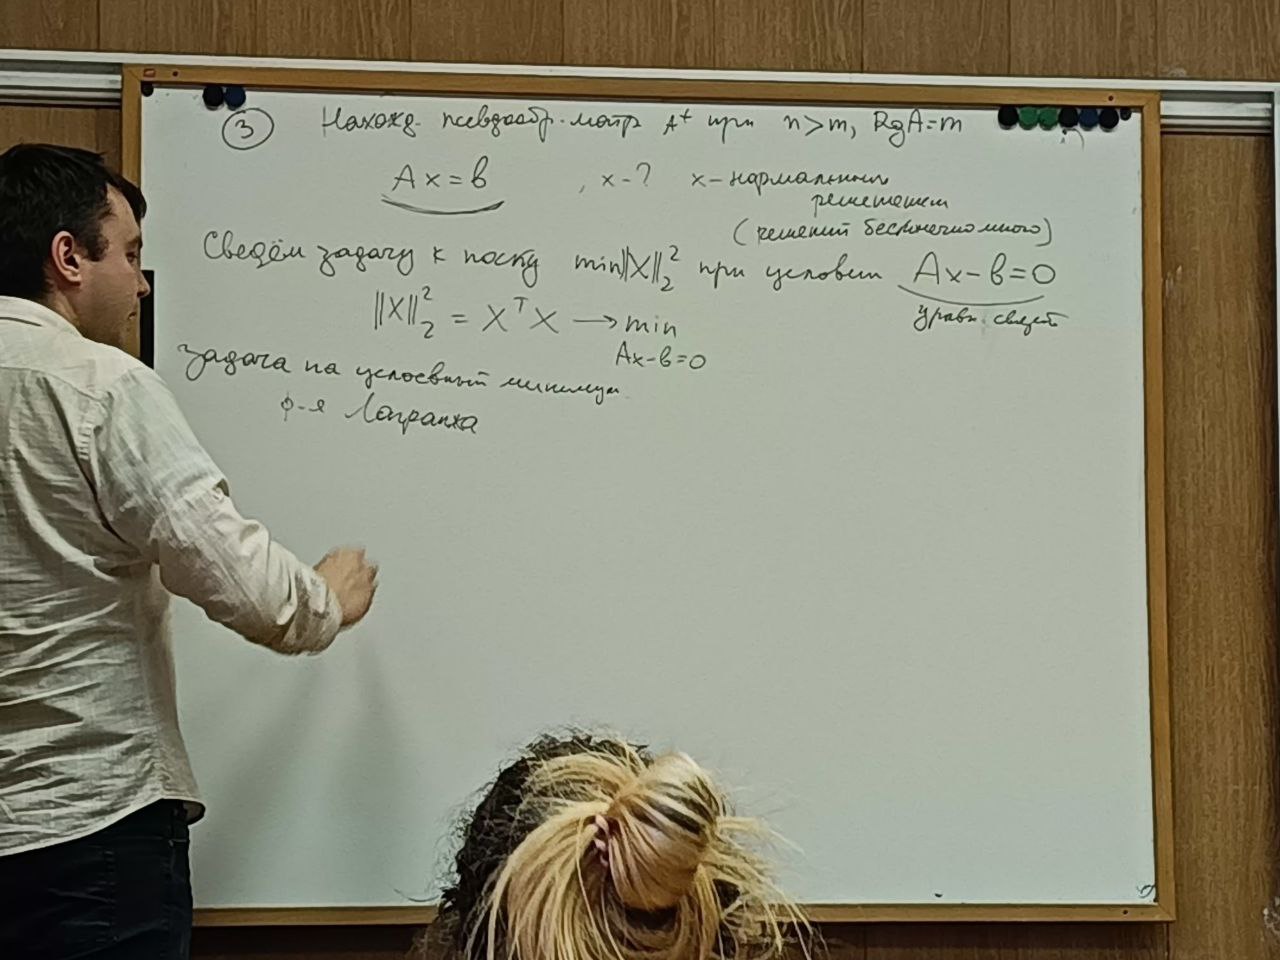 3 Нахожд. псевдообр. матр A⁺ при n>m, RgA=m
Ax=b , x-? x- нормальным решением
(решений бесконечно много)
Сведём задачу к поску min||X||₂² при условии Ax-b=0
уравн. связи
||X||₂² = XᵀX → min
Ax-b=0
Задача на условный минимум
ф-я Лагранжа